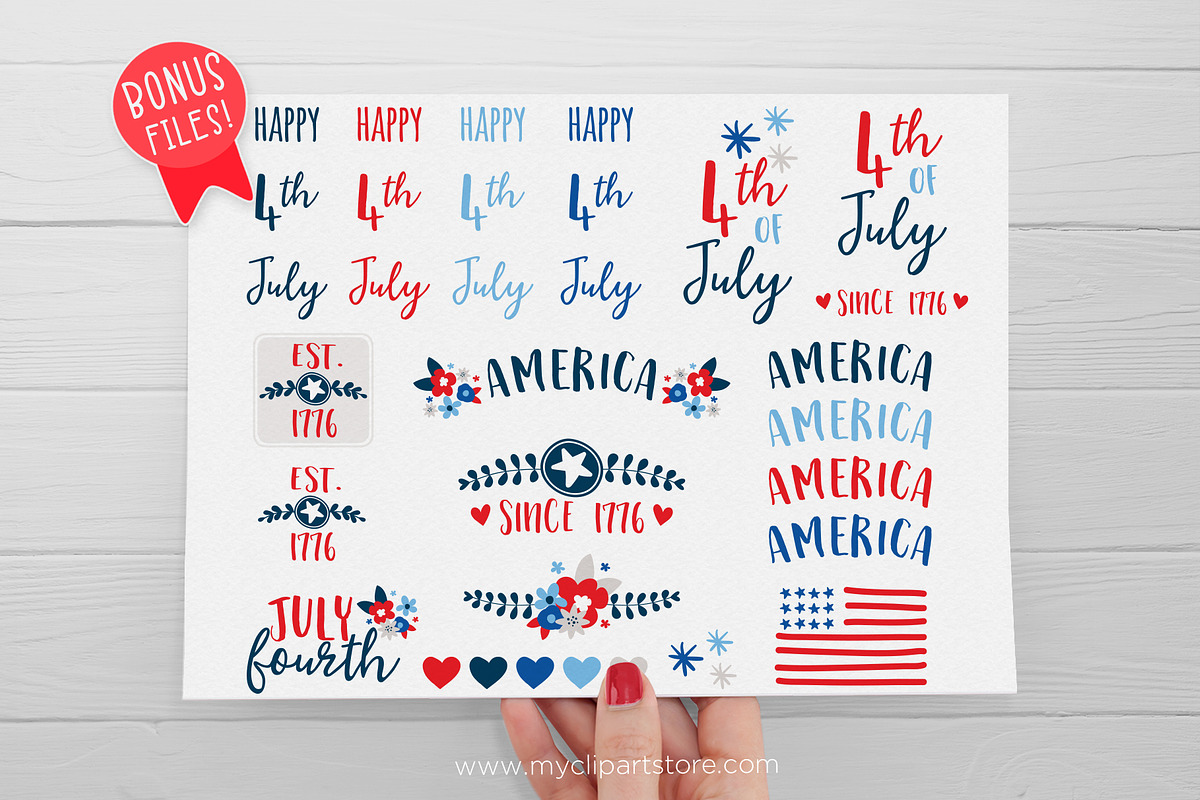 BONUS
FILES!
HAPPY HAPPY HAPPY HAPPY
4th 4th 4th 4th
July July July July
4th
OF
July
4th
OF
July
SINCE 1776
EST.
1776
AMERICA
AMERICA
AMERICA
AMERICA
AMERICA
EST.
1776
SINCE 1776
JULY
fourth
www.myclipartstore.com